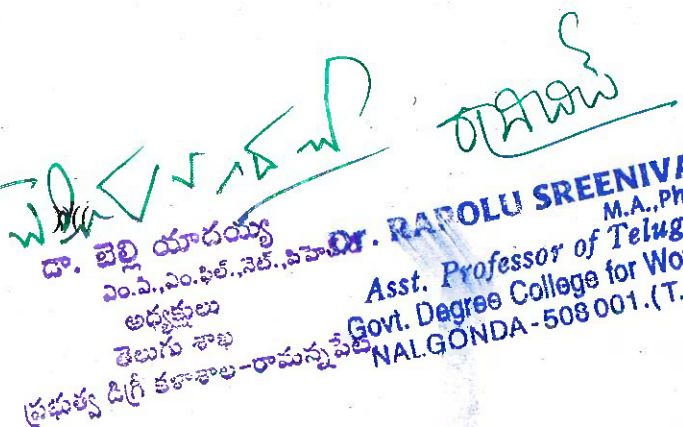 డా. బెల్లి యాదయ్య
ఎం.ఏ.,ఎం.ఫిల్.,నెట్.,పిహెచ్‌డి
అధ్యక్షులు
తెలుగు శాఖ
ప్రభుత్వ డిగ్రీ కళాశాల-రామన్నపేట
Dr. RAPOLU SREENIVA
M.A.,Ph
Asst. Professor of Telug
Govt. Degree College for Wo
NALGONDA-508 001.(T.